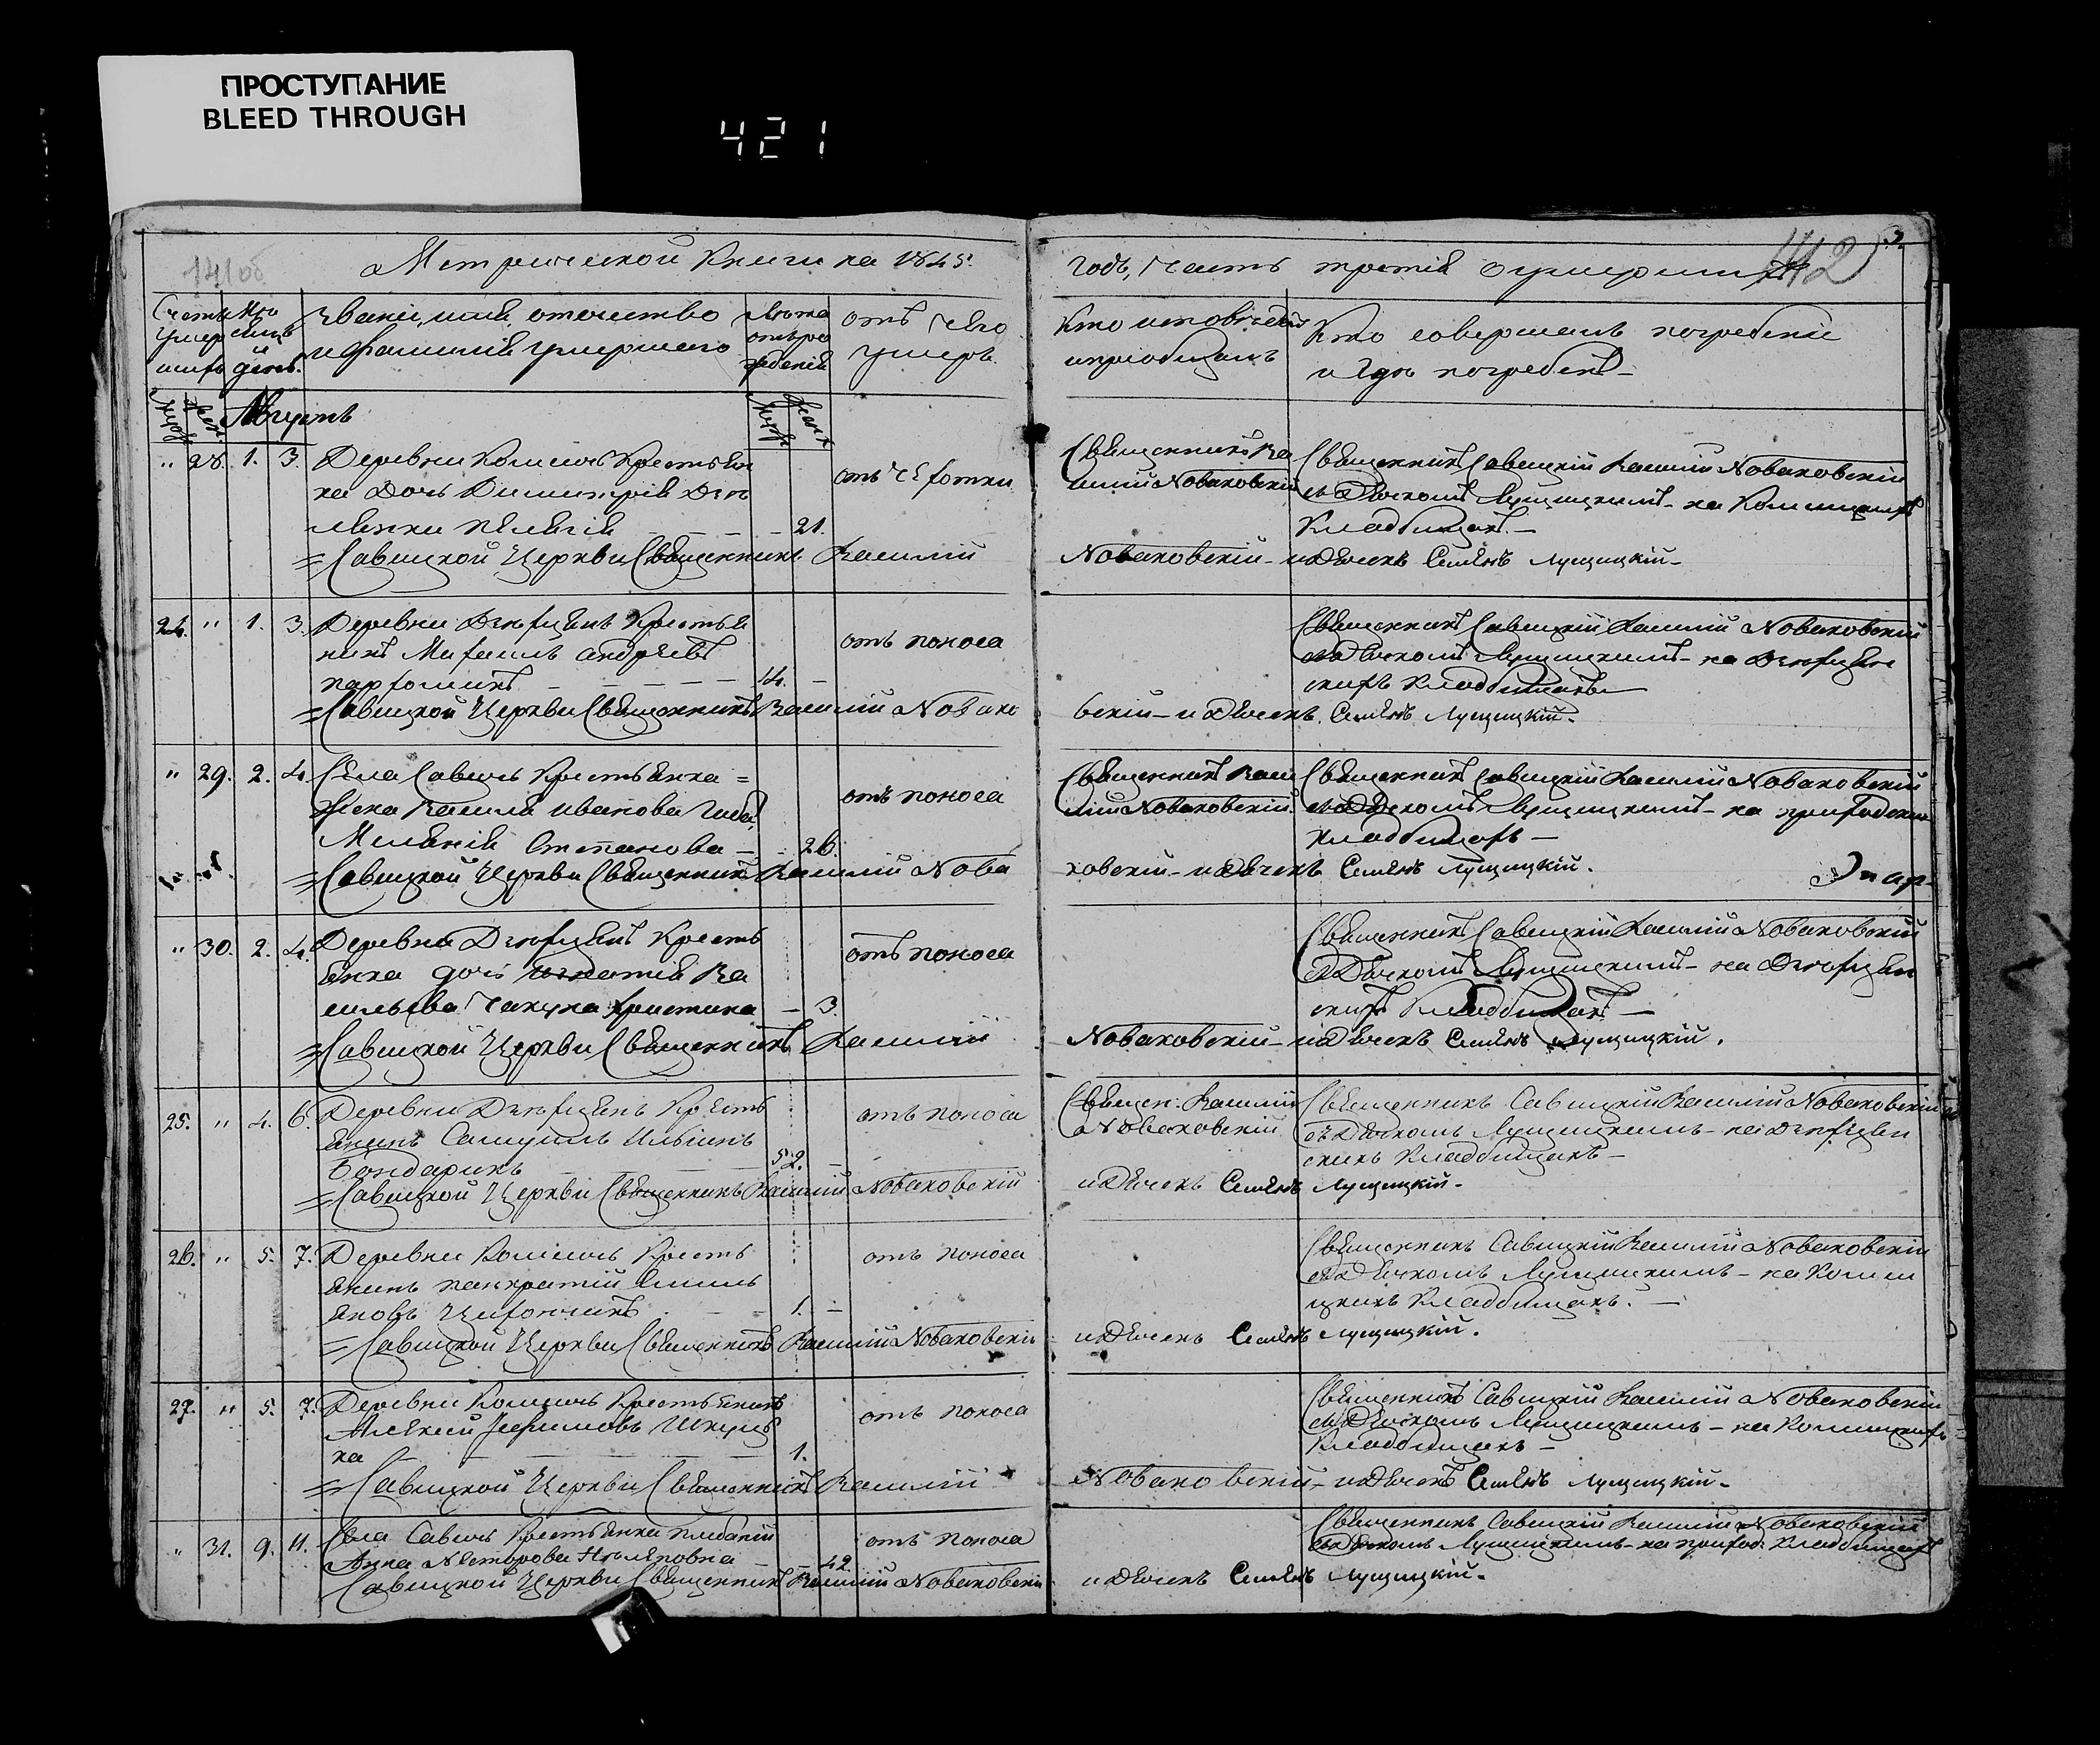 ПРОСТУПАНИЕ
BLEED THROUGH
421
141об
Метрической Книги на 1845.
годъ, часть третія о умершихъ
142
Звание, имя, отечество
и фамилія умершаго
отъ чего
умеръ.
Кто исповѣдывалъ
и пріобщалъ
Кто совершалъ погребеніе
и гдѣ погребенъ
Августъ
" 28. 1. 3. Деревни Крестьян
ка Дочь Димитрія
Пелагія 21.
отъ чахотки
Священникъ Ва
силій Новаковскій
Священникъ Савицкій Василій Новаковскій
съ Дьячкомъ Лущицкимъ - на
Кладбищахъ. -
= Савицкой Церкви Священникъ Василій
Новаковскій - и Дьячекъ Семенъ Лущицкій -
24. " 1. 3. Деревни Крестья
нинъ Михаилъ Андреевъ
14. -
отъ поноса
Священникъ Савицкій Василій Новаковскій
съ Дьячкомъ Лущицкимъ - на
скихъ Кладбищахъ
= Савицкой Церкви Священникъ Василій Новако
вскій - и Дьячекъ Семенъ Лущицкій.
" 29. 2. 4. Села Савичъ Крестьянка =
Жена Василя Иванова
Меланія Степанова - 26.
отъ поноса
Священникъ Васи
лій Новаковскій.
Священникъ Савицкій Василій Новаковскій
съ Дьячкомъ Лущицкимъ - на приходскихъ
кладбищахъ -
= Савицкой Церкви Священникъ Василій Нова
ковскій - и Дьячекъ Семенъ Лущицкій.
" 30. 2. 4. Деревни Кресть
янка дочь Игнатія Ва
сильева Христина - 3.
отъ поноса
Священникъ Савицкій Василій Новаковскій
съ Дьячкомъ Лущицкимъ - на
скихъ Кладбищахъ -
= Савицкой Церкви Священникъ Василій
Новаковскій - и Дьячекъ Семенъ Лущицкій.
25. " 4. 6. Деревни Кресть
янинъ Самуилъ Ильинъ
Бондарикъ 52. -
отъ поноса
Священ: Василій
Новаковскій
Священникъ Савицкій Василій Новаковскій
съ Дьячкомъ Лущицкимъ - на
скихъ Кладбищахъ -
= Савицкой Церкви Священникъ Василій Новаковскій
и Дьячекъ Семенъ Лущицкій -
26. " 5. 7. Деревни Кресть
янинъ Панкратій Емиль
яновъ 1. -
отъ поноса
Священникъ Савицкій Василій Новаковскій
съ Дьячкомъ Лущицкимъ - на
Кладбищахъ. -
= Савицкой Церкви Священникъ Василій Новаковскій
и Дьячекъ Семенъ Лущицкій.
27. " 5. 7. Деревни Крестьянинъ
Алексій Ефимовъ
1.
отъ поноса
Священникъ Савицкій Василій Новаковскій
съ Дьячкомъ Лущицкимъ - на
Кладбищахъ -
= Савицкой Церкви Священникъ Василій
Новаковскій - и Дьячекъ Семенъ Лущицкій -
" 31. 9. 11. Села Савичъ Крестьянка
Анна Несторова - 42.
отъ поноса
Священникъ Савицкій Василій Новаковскій
съ Дьячкомъ Лущицкимъ - на приход: Кладбищахъ
Савицкой Церкви Священникъ Василій Новаковскій
и Дьячекъ Семенъ Лущицкій -